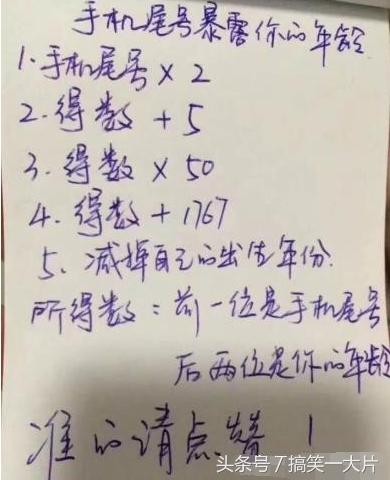 手机尾号暴露你的年龄
1.手机尾号×2
2.得数+5
3.得数×50
4.得数+1767
5、减掉自己的出生年份.
所得数:前一位是手机尾号
后两位是你的年龄
准的请点赞!
头条号7搞笑一大片